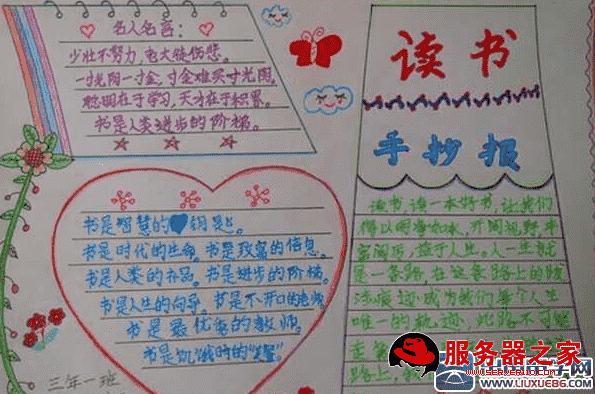 名人名言:
少壮不努力,老大徒伤悲。
一寸光阴一寸金,寸金难买寸光阴。
聪明在于学习,天才在于积累。
书是人类进步的阶梯。
读书
手抄报
书是智慧的钥匙。
书是时代的生命。书是致富的信息。
书是人类的补品。书是进步的阶梯。
书是人生的向导。书是不开口的老师
书是最优秀的教师。
书是饥饿时的
三年一班
读书 读一本好书,让我们
得以明净如水,开阔视野,丰
富阅历,益于人生。人一生就
是一条路,在这条路上的跋
涉痕迹成为我们每个人一生
唯一的轨迹,此路不可能
走
路上,我
服务器之家
WWW.LIUXUE86.COM